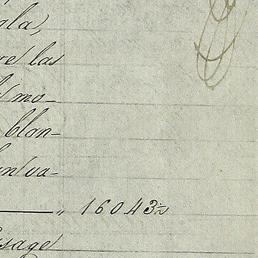 ala,
re las
mo-
blan-
un va-
" 16043½
sage